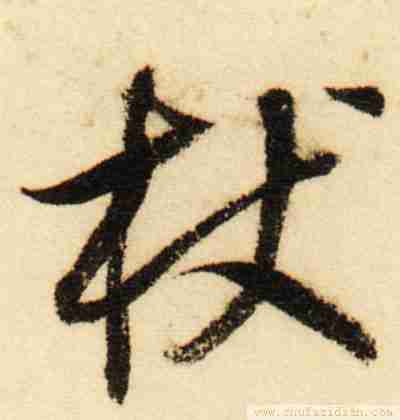 杖
www.shufazidian.com